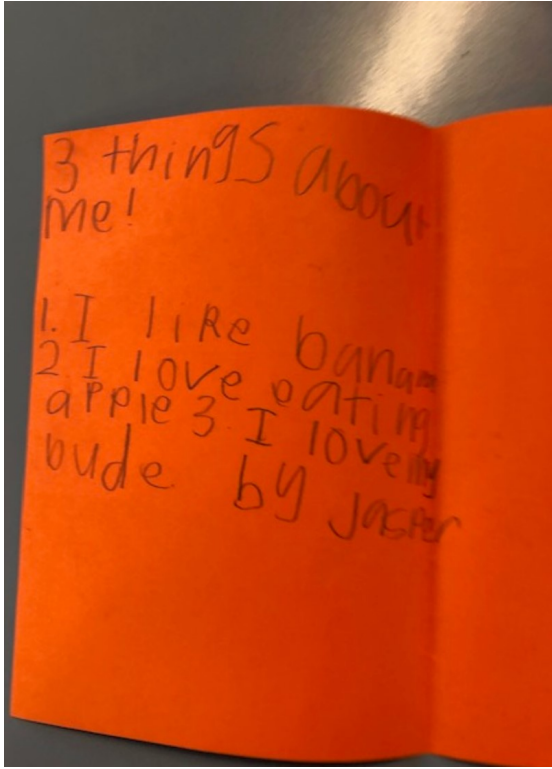 3 things about
me!
1. I like banana
2. I love eating
apple 3. I love my
bude by Jasper